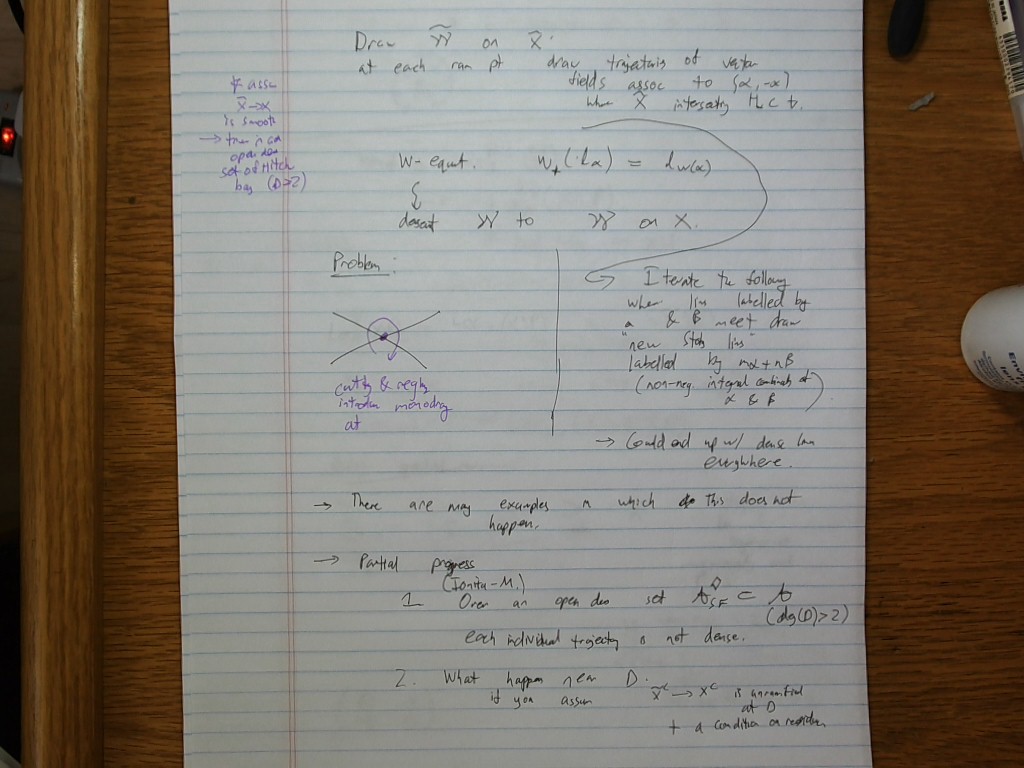 Draw W̃ on X̃.
at each ram pt draw trajectories of vector
fields assoc to {α, -α}
where X̃ intersecting Hα ⊂ t.
* assu
X̃→X
is smooth
→ true in an
open den
set of Hitch
bas (D>2)
W-equit. w₊(lα) = l w(α)
descent W̃ to W on X.
Problem:
cutting & regluing
introdu monodromy
at
Iterate the following
when lins labelled by
α & β meet draw
"new Stokes lins"
labelled by nα+nβ
(non-neg. integral combinats of
α & β)
→ Could end up w/ dense lins
everywhere.
→ There are many examples in which this does not
happen.
→ Partial progress
(Ionita-M.)
1 Over an open den set A◇SF ⊂ A
(deg(D)>2)
each individual trajectory is not dense.
2. What happen near D.
if you assum X̃ᶜ → Xᶜ is unramified
at D
+ a condition on residues